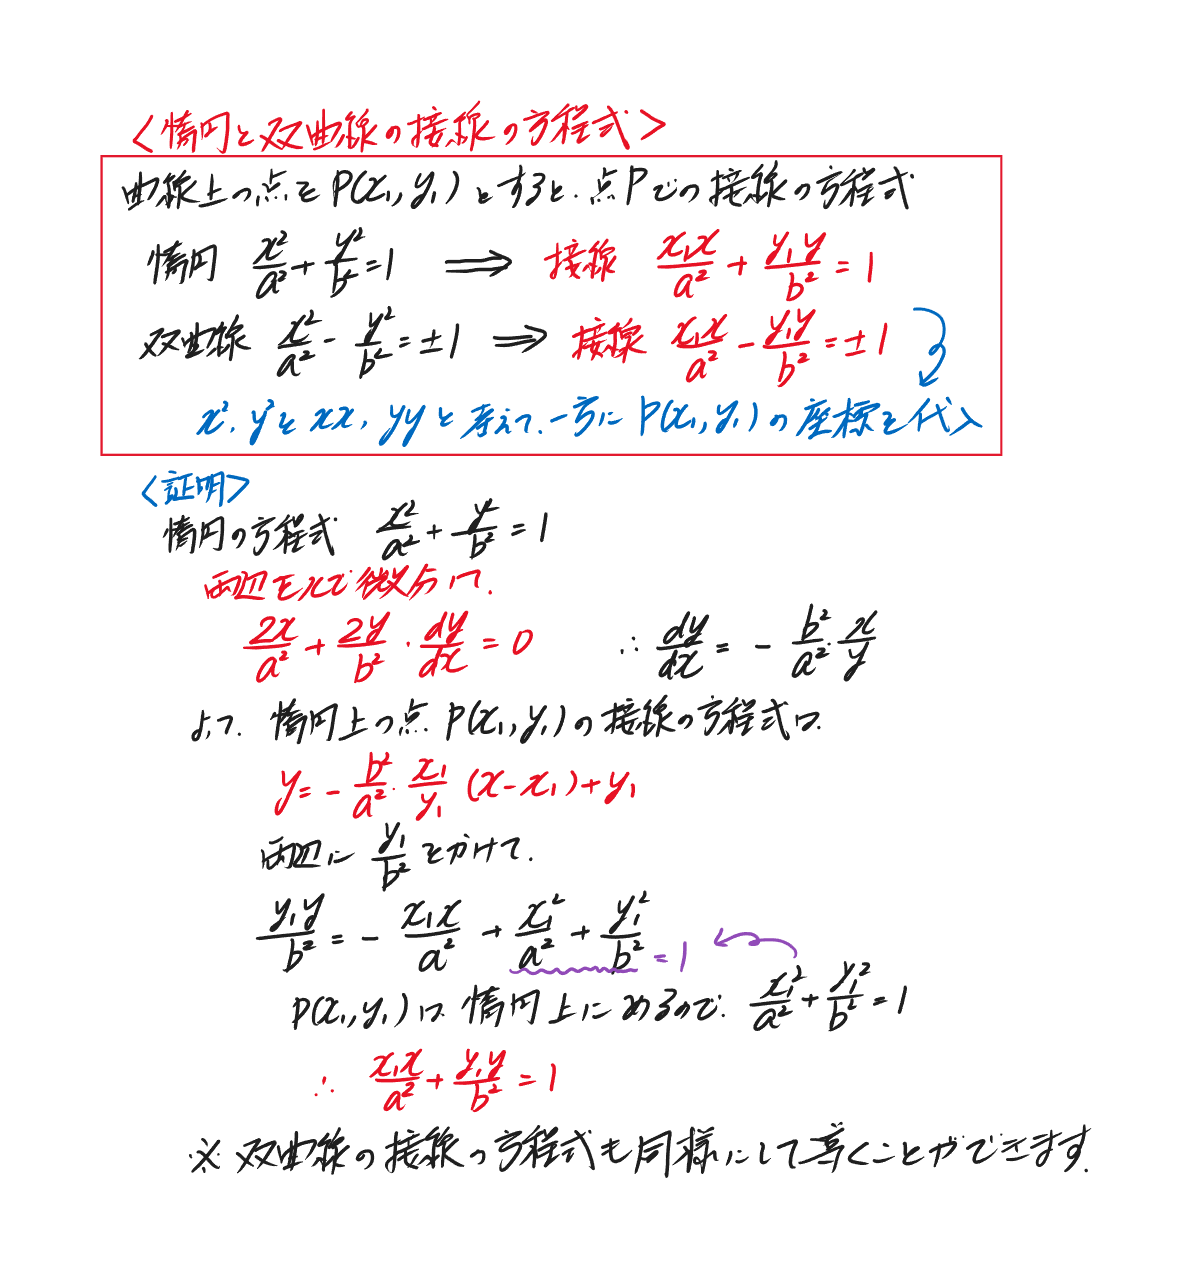 <楕円と双曲線の接線の方程式>
曲線上の点を P(x₁, y₁) とすると、点Pでの接線の方程式
楕円 x²/a² + y²/b² = 1 ⟹ 接線 x₁x/a² + y₁y/b² = 1
双曲線 x²/a² - y²/b² = ±1 ⟹ 接線 x₁x/a² - y₁y/b² = ±1
x², y²を xx, yy と考えて、一方に P(x₁, y₁) の座標を代入
<証明>
楕円の方程式 x²/a² + y²/b² = 1
両辺をxで微分して、
2x/a² + 2y/b² · dy/dx = 0 ∴ dy/dx = - b²/a² · x/y
よって、楕円上の点 P(x₁, y₁) の接線の方程式は、
y = - b²/a² · x₁/y₁ (x - x₁) + y₁
両辺に y₁/b² をかけて、
y₁y/b² = - x₁x/a² + x₁²/a² + y₁²/b² = 1
P(x₁, y₁) は、楕円上にあるので、 x₁²/a² + y₁²/b² = 1
∴ x₁x/a² + y₁y/b² = 1
※ 双曲線の接線の方程式も同様にして導くことができます。